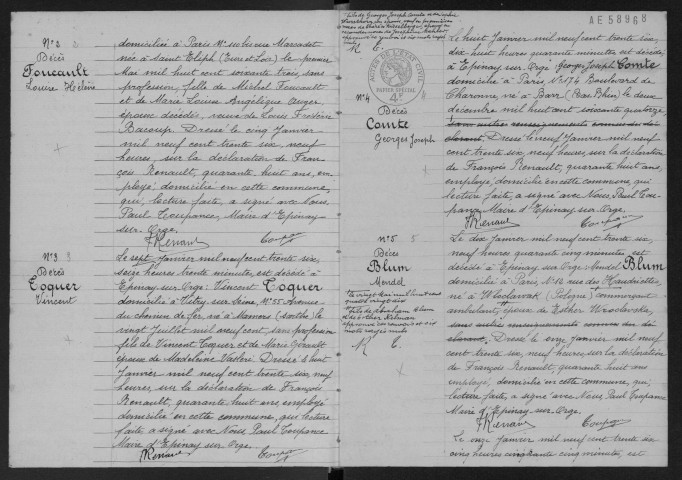 N° 2
Décès
Foucault
Louise Hélène
domiciliée à Paris
née à Saint Eliph (Eure et Loir) le premier
Mai mil huit cent soixante trois, sans
profession, fille de Michel Foucault
et de Marie Louise Angélique Auger
époux décédés, veuve de Louis Frédéric
Bacoup. Dressé le cinq Janvier
mil neuf cent trente six, neuf
heures, sur la déclaration de Fran-
çois Renault, quarante huit ans, em-
ployé domicilié en cette commune,
qui, lecture faite, a signé avec Nous,
Paul Coupance, Maire d'Epinay
sur-Orge.
N° 3
Décès
Coquer
Vincent
Le sept Janvier mil neuf cent trente six,
seize heures trente minutes, est décédé à
Epinay-sur-Orge: Vincent Coquer
domicilié à Vitry sur Seine, N° 55 Avenue
du chemin de fer, né à Mamers (Sarthe) le
vingt Juillet mil neuf cent, sans profession
fils de Vincent Coquer et de Marie
époux de Madeleine Dressé le huit
Janvier mil neuf cent trente six neuf
heures, sur la déclaration de François
Renault, quarante huit ans, employé
domicilié en cette commune, qui, lecture
faite, a signé avec Nous Paul Coupance
Maire d'Epinay sur Orge.
AE 58968
ACTES DE L'ETAT CIVIL
PAPIER SPECIAL
4F
N° 4
Décès
Comte
Georges Joseph
Le huit Janvier mil neuf cent trente six,
dix huit heures quarante minutes est décédé,
à Epinay sur Orge: Georges Joseph Comte
domicilié à Paris N° 174 Boulevard de
Charonne, né à Barr (Bas Rhin) le deux
décembre mil huit cent soixante quatorze,
sans autres renseignements
Dressé le neuf Janvier mil neuf
cent trente six, neuf heures, sur la déclaration
de François Renault, quarante huit ans,
employé, domicilié en cette commune, qui
lecture faite, a signé avec Nous, Paul Cou-
pance Maire d'Epinay sur Orge.
N° 5
Décès
Blum
Mendel
Le dix Janvier mil neuf cent trente six,
neuf heures quarante cinq minutes est
décédé à Epinay sur Orge: Mendel Blum
domicilié à Paris N° 12 rue des Haudriettes,
né à Wloclawek (Pologne) commerçant
ambulant, époux de Esther Wroclawska,
sans autres renseignements
Dressé le onze Janvier mil neuf
cent trente six, neuf heures, sur la déclaration
de François Renault, quarante huit ans
employé, domicilié en cette commune, qui
lecture faite, a signé avec Nous Paul Coupance
Maire d'Epinay sur Orge.
Le onze Janvier mil neuf cent trente six
cinq heures cinquante cinq minutes, est